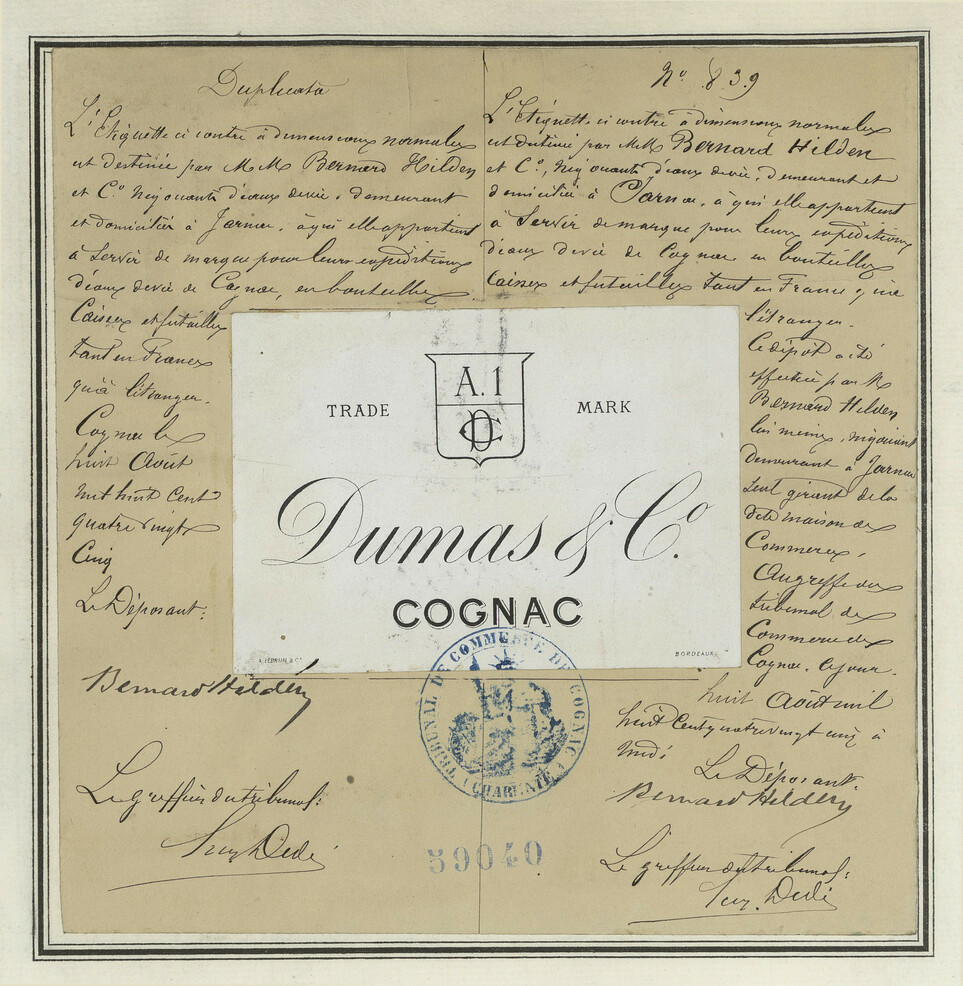 Duplicata
L'Etiquette ci contre à dimensions normales
est destinée par M.M. Bernard Hilden
et Co. Négociants d'eaux de vie, demeurant
et domiciliés à Jarnac, à qui elle appartient
à Servir de marque pour leurs expéditions
d'eaux de vie de Cognac, en bouteilles
Caisses et futailles
tant en France
qu'à l'étranger.
Cognac le
huit Août
mil huit Cent
quatre vingt
Cinq
Le Déposant:
Bernard Hilden
Le Greffier du tribunal:
No. 839
L'Etiquette ci contre à dimensions normales
est destinée par M.M. Bernard Hilden
et Co., Négociants d'eaux de vie, demeurant et
domiciliés à Jarnac, à qui elle appartient
à Servir de marque pour leurs expéditions
d'eaux de vie de Cognac en bouteilles
Caisses et futailles tant en France qu'à
l'étranger.
Ce dépôt a été
effectué par M.
Bernard Hilden
lui même, négociant
demeurant à Jarnac
seul gérant de la
dite maison de
Commerce,
Au greffe du
tribunal de
Commerce de
Cognac, ce jour.
huit Août mil
huit Cent quatre vingt cinq à
midi
Le Déposant:
Bernard Hilden
Le greffier du tribunal:
TRADE A.1 MARK
DC
Dumas & Co.
COGNAC
A. LEBRUN & Cie BORDEAUX
TRIBUNAL DE COMMERCE DE COGNAC
(CHARENTE)
59040